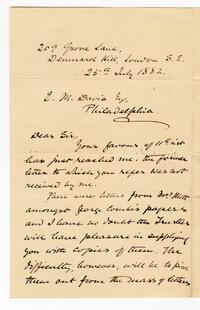 209 Grove Lane,
Denmark Hill, London S. E.
25th July 1882.
E. M. Davis Esq
Philadelphia.
Dear Sir,
Your favour of 11th inst
has just reached me: the former
letter to which you refer was not
received by me.
There were letters from Mrs Mott
amongst George Combe's papers
and I have no doubt the Trustees
will have pleasure in supplying
you with copies of them. The
difficulty, however, will be to pick
them out from the mass of letters